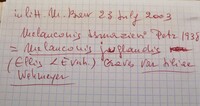 in litt. Mr. Barr 23 July 2003
Melanconis Petr. 1938
= Melanconis juglandis
(Ellis & Everh.) Graves var
Wehmeyer